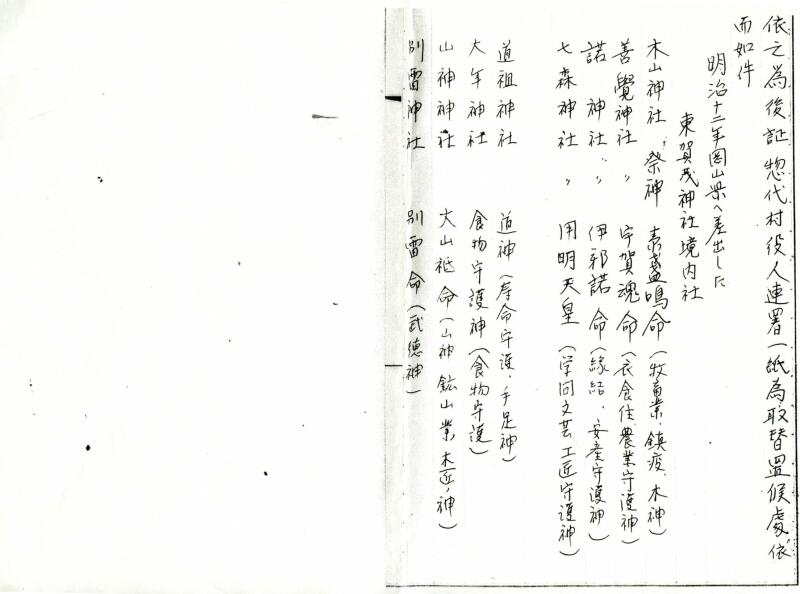 依之為後証惣代村役人連署一紙為取替置候處依
而如件
明治十二年岡山県へ差出した
東賀茂神社境内社
木山神社 祭神 素盞鳴命(牧畜業、鎮疫、木神)
善覺神社 〃 宇賀魂命(衣食住、農業守護神)
諾神社 〃 伊邪諾命(縁結、安産守護神)
七森神社 〃 用明天皇(学問文芸工匠守護神)
道祖神社 道神(寿命守護、手足神)
大年神社 食物守護神(食物守護)
山神神社 大山祗命(山神鉱山業木匠ノ神)
別雷神社 別雷命(武徳神)